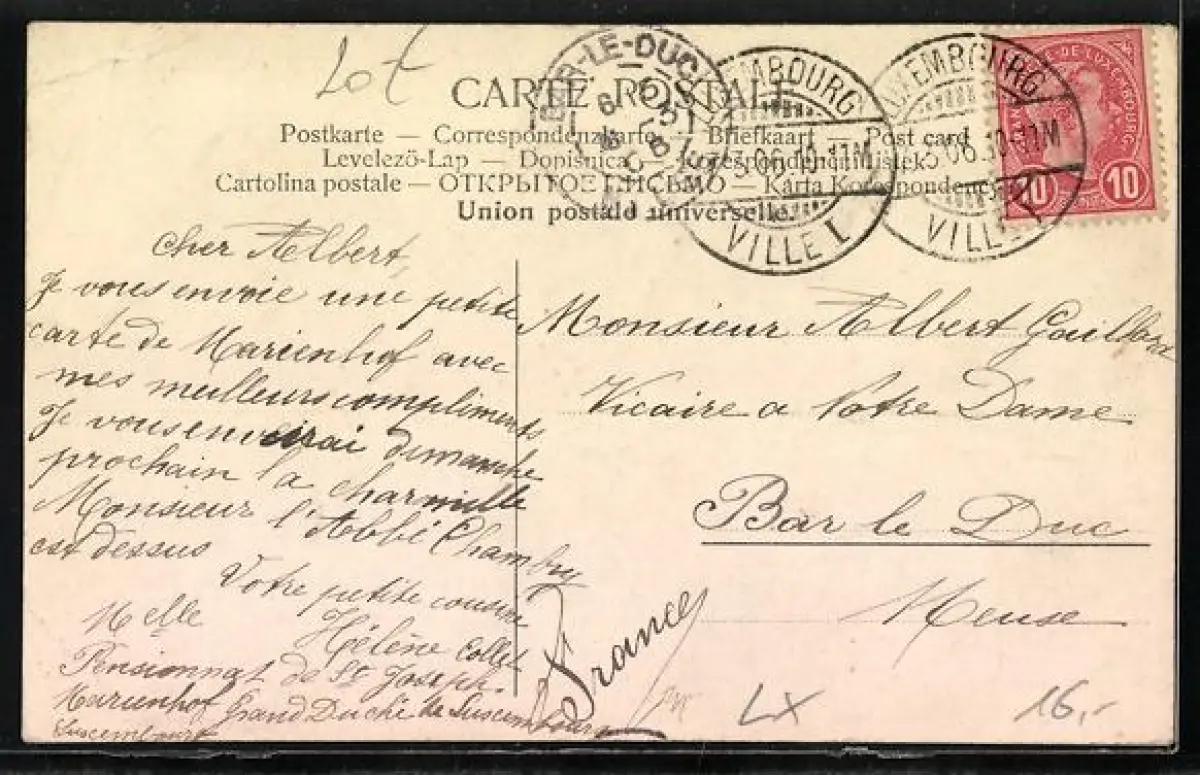 Lot
CARTE POSTALE
Postkarte — Correspondenzkarte — Briefkaart — Post card
Levelező-Lap — Dopisnica — Korespondenční lístek
Cartolina postale — ОТКРЫТОЕ ПИСЬМО — Karta Korespondencyjna
Union postale universelle.
BAR-LE-DUC
LUXEMBOURG
VILLE I.
LUXEMBOURG
VILLE I
DE LUXEMBOURG
10 10
Cher Albert,
Je vous envoie une petite
carte de Marienhof avec
mes meilleurs compliments
Je vous enverrai dimanche
prochain la charmille
Monsieur l'Abbé Chambry
est dessus
Votre petite cousine
Melle Hélène Collet
Pensionnat de St Joseph.
Marienhof Grand Duché de Luxembourg
Luxembourg
Monsieur Albert Gaillard
Vicaire a Notre Dame
Bar le Duc
Meuse
France
LX
16,-